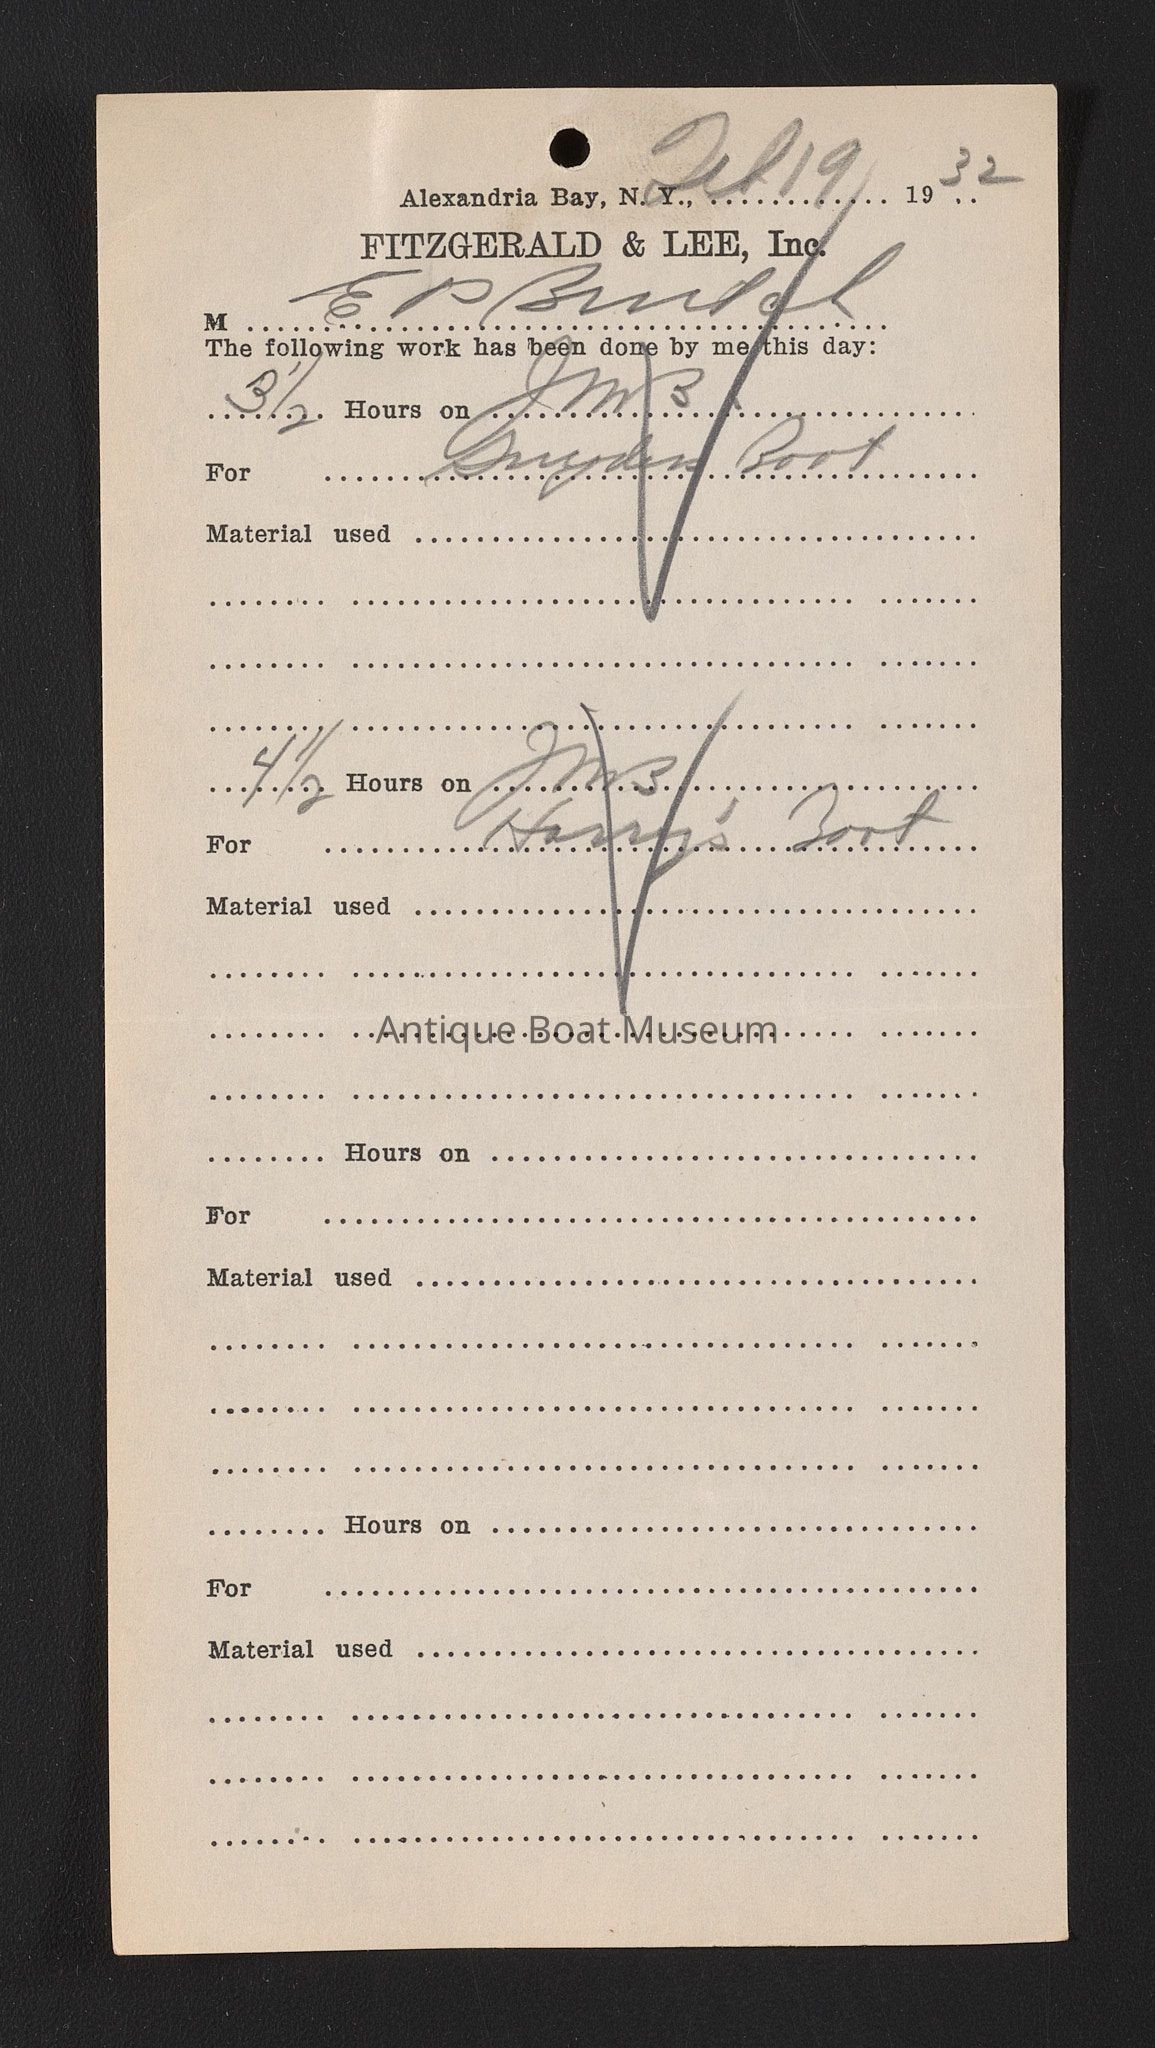 Alexandria Bay, N. Y., Feb 19 1932
FITZGERALD & LEE, Inc.
M E P
The following work has been done by me this day:
3 1/2 Hours on J M B
For Snyders Boat
Material used
4 1/2 Hours on J M B
For Harry's Boat
Material used
Antique Boat Museum
Hours on
For
Material used
Hours on
For
Material used